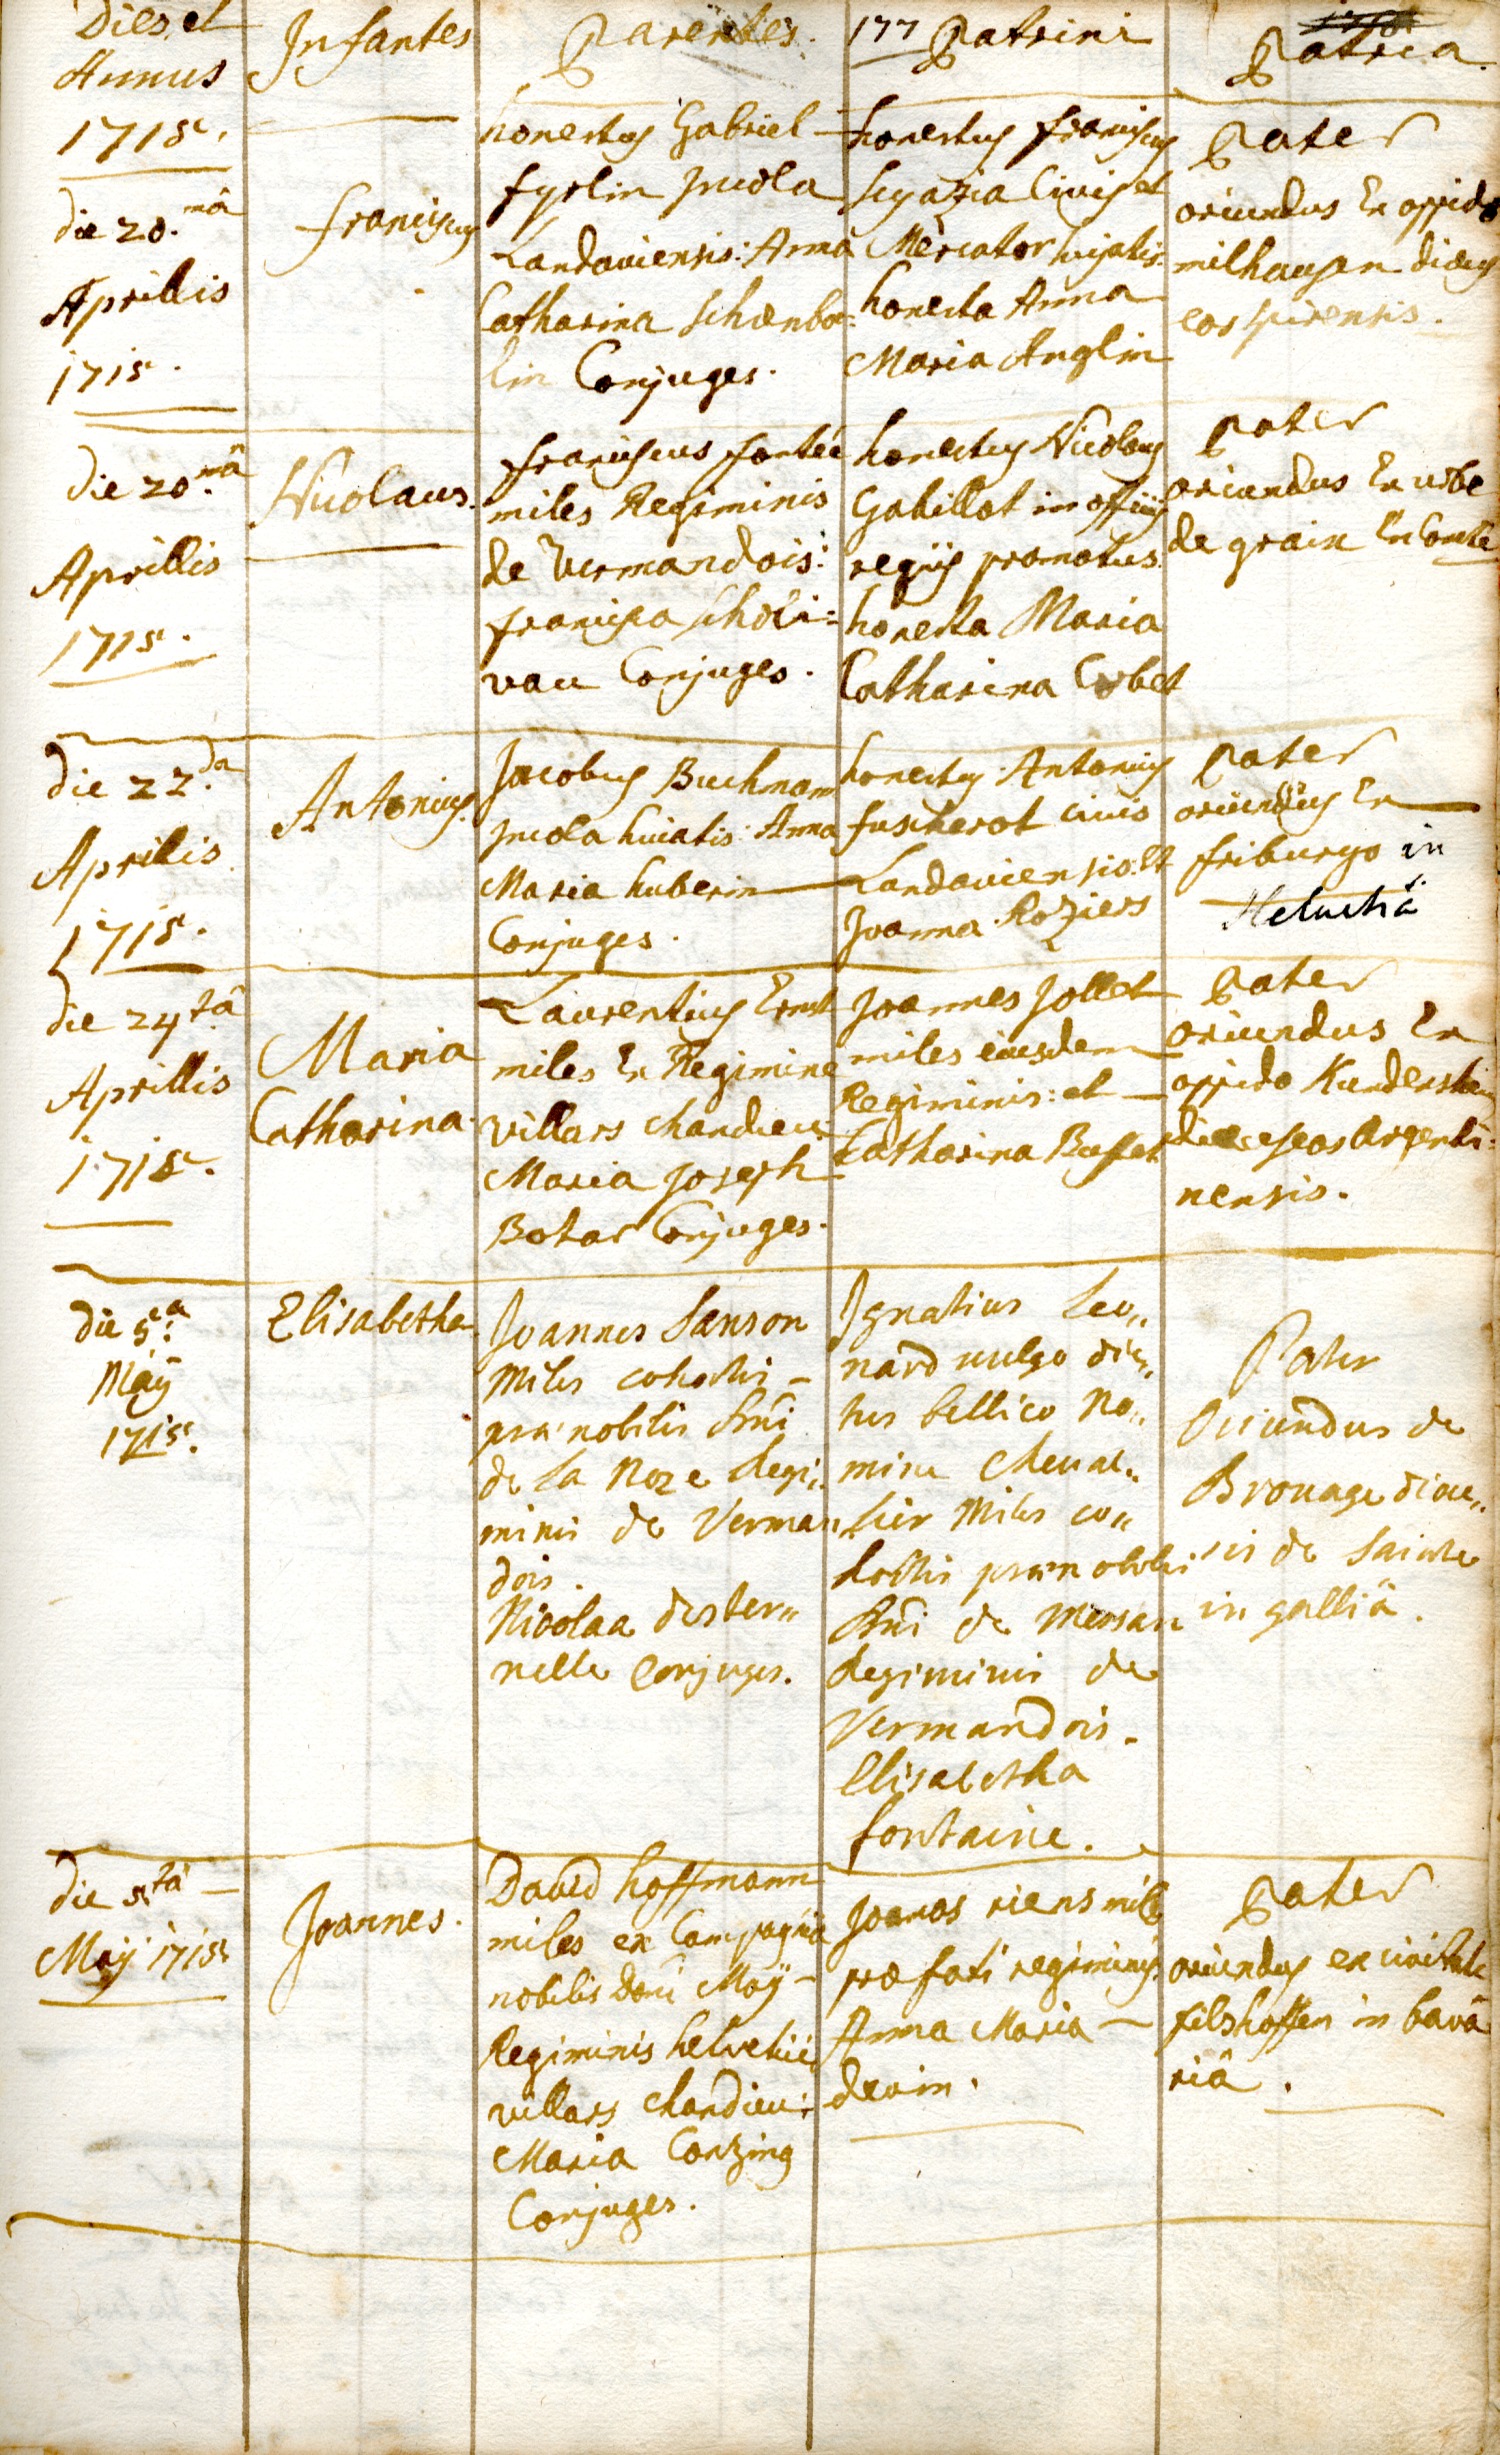 Dies et
Annus
1715.
Infantes
Parentes.
177 Patrini
Patria.
die 20.mâ
Aprillis
1715.
franciscus
honestus Gabriel
fyrlin incola
Landaviensis: Anna
Catharina schenbæ=
lin Conjuges.
honestus franciscus
segazia Civis et
Mercator hujatis:
honesta Anna
Maria Anglin
Pater
oriundus Ex oppido
milhausen diœc
eos spirensis.
die 20.mâ
Aprillis
1715.
Nicolaus.
franciscus fontée
miles Regiminis
de Vermandois:
francisca scholi=
vau Conjuges.
honestus Nicolaus
Gabillot in officiis
regiis promotus:
honesta Maria
Catharina Corbet
pater
oriundus Ex urbe
de grain En Comté
die 22.da
Aprilis
1715.
Antonius.
Jacobus Buchmann
incola huiatis: Anna
Maria huberin
Conjuges.
honestus Antonius
fuscherot civis
Landaviensis: Et
Joanna Roziers
pater
oriundus Ex
friburgo in
Helvetiâ
die 24tâ
Aprillis
1715.
Maria
Catharina.
Laurentius Ernst
miles Ex Regimine
villars chandieu:
Maria Joseph
Botar Conjuges.
Joannes Jollet
miles eiusdem
Regiminis: et
Catharina Buffet
pater
oriundus Ex
oppido Kundershein
diœceseos Argenti=
nensis.
die 5.a
Maÿ
1715.
Elisabetha
Joannes Sanson
Miles cohortis
præ nobilis Dñi
de la Noze Regi,,
minis de Verman,,
dois.
Nicolaa dester,,
nelle Conjuges.
Ignatius Leo,,
nard vulgo dic,,
tus bellico No,,
mine Cheval,,
lier Miles co,,
hortis prænobilis
Dñi de Messan
Regiminis de
Vermandois.
Elisabetha
fontaine.
Pater
Oriundus de
Brouage diœce,,
sis de Sainte
in galliâ.
die 5tâ
Maÿ 1715
Joannes.
David hoffmann
miles ex Compagnia
nobilis Domi Maÿ
Regiminis helvetici
villars chandieu:
Maria Contzing
Conjuges.
Joanes riens mil
præfati regiminis
Anna Maria
dexin.
Pater
oriundus ex civitate
filshoffen in bavâ
riâ.